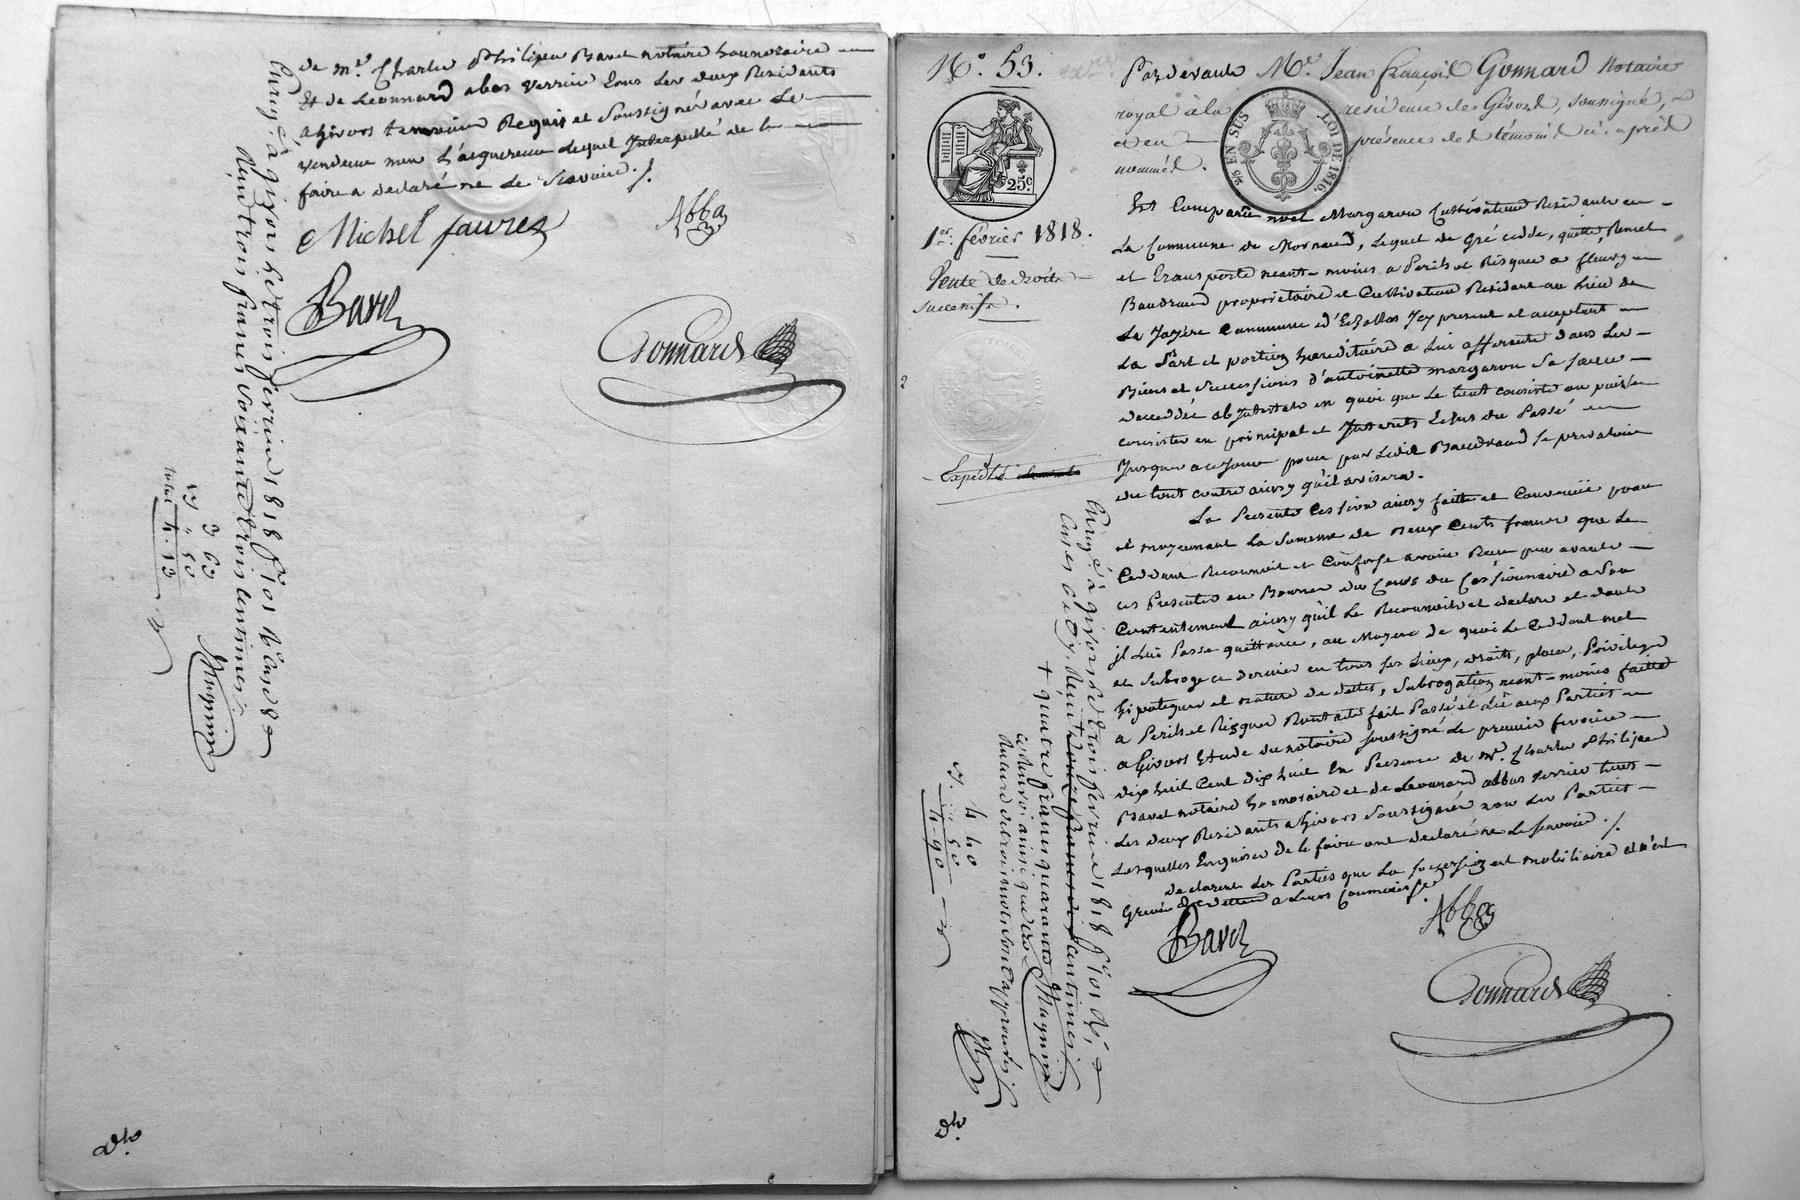 de Me. Charles Philipe Bavet notaire honnoraire
Et de Leonnard abas verrier tous les deux Residants
a Givors temoins Requis et Soussignés avec le
vendeur non l'acquereur lequel Interpellé de le
faire a declaré ne le Scavoir ./.
Michel faure
Abba
Bavet
Gonnard
Enrgé. à givors le trois fevrier 1818 fo. 101
trois francs soixante trois centimes
3 63
50
total 4-13
Magnin
No. 53.
25c
1er. février 1818.
Vente de droits
successifs.
Expédié
Pardevant Me. Jean françois Gonnard Notaire
royal à la résidence de Givors, soussigné,
et en présence des témoins ci-après
nommés.
25 EN SUS
LOI DE 1816.
Est Comparu noel Margaron Cultivateur Residant en
La Commune de Mornand, Lequel de gré cedde, quitte, Remet
et transporte neant-moins a Perils et Risques a fleury
Baudrand proprietaire et Cultivateur Residant au Lieu de
La Jayère Commune d'Echallas Icy present et acceptant
La Part et portion hereditaire a lui afferente dans les
Biens et Successions d'antoinette margaron Sa soeur
decedée abIntestat en quoi que le tout consiste ou puisse
consister en principal et Interets Echus du Passé
Jusques a ce Jour pour par Ledit Baudrand se prevaloir
du tout contre ainsy qu'il avisera.
La Presente Cession ainsy faitte et Convenüe pour
et moyennant la Somme de deux Cents francs que Le
Ceddant Reconnoit et Confesse avoir Reçu par avant
ces Presentes en Bonnes du Cours du Cessionnaire a Son
Contentement ainsy qu'il Le Reconnoit et declare et dont
il Lui Passe quittance, au Moyen de quoi Le Ceddant met
et Subroge ce dernier en tous ses Lieux, droits, place, Privilege
hipoteques et nature de dettes, Subrogation neant-moins faitte
a Perils et Risques dont acte fait Passé et Lû aux Parties
a Givors Etude du notaire soussigné Le premier fevrier
dix huit Cent dix huit En Presence de Me. Charles Philipe
Bavet notaire honnoraire et de Leonnard abbas verrier tous
Les deux Residants a Givors Soussignés non Les Parties
Lesquelles Enquises de le faire ont declaré ne Le Scavoir ./.
declarent Les Parties que La succession est mobiliaire et n'est
Grevée de dettes a Leurs Connoissance
Bavet
Abba
Gonnard
Enrgé. à givors le trois fevrier 1818 fo. 101
+ quatre francs quarante
centimes
Magnin
4 40
50
4-90